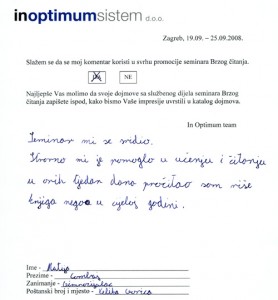 inoptimumsistem d.o.o.
Zagreb, 19.09. – 25.09.2008.
Slažem se da se moj komentar koristi u svrhu promocije seminara Brzog
čitanja.
DA NE
Najljepše Vas molimo da svoje dojmove sa službenog dijela seminara Brzog
čitanja zapišete ispod, kako bismo Vaše impresije uvrstili u katalog dojmova.
In Optimum team
Seminar mi se svidio.
Stvarno mi je pomoglo u učenju i čitanju
u ovih tjedan dana pročitao sam više
knjiga nego u cijeloj godini.
Ime - Mateja
Prezime -
Zanimanje -
Poštanski broj i mjesto - Velika Gorica